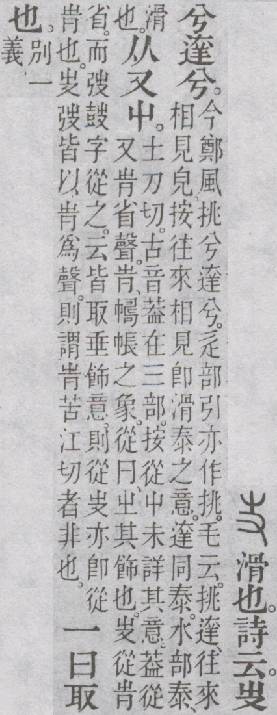 滑也。詩云。𠬢
兮達兮。
今鄭風挑兮達兮。辵部引亦作挑。毛云。挑達、往來
相見皃。按往來相見卽滑泰之意。達同泰。水部泰、
滑
也。
从又屮。
土刀切。古音葢在三部。按從屮未詳其意。葢從
又𡉉省聲。𡉉、幬帳之象。從𠔼㞢其飾也。𠬢從𡉉
省。而弢鼓字從之。云皆取垂飾意。則從𠬢亦卽從
𡉉也。𠬢弢皆以𡉉爲聲。則謂𡉉苦江切者非也。
一曰取
也。
別一
義